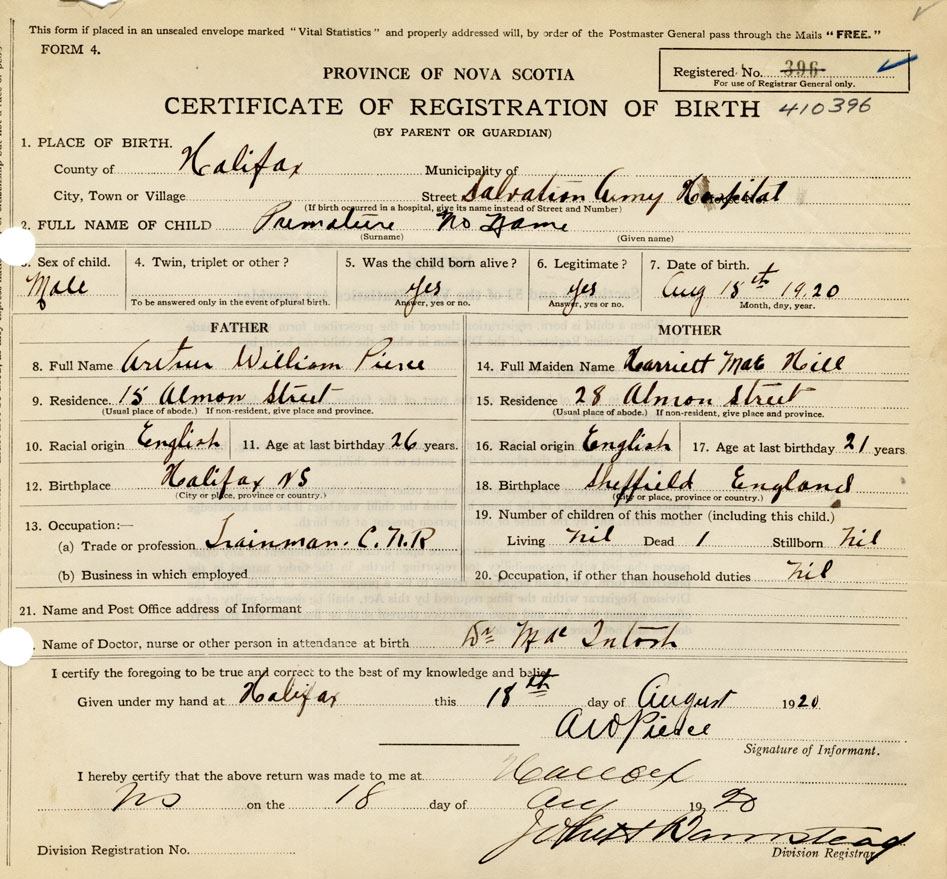 This form if placed in an unsealed envelope marked "Vital Statistics" and properly addressed will, by order of the Postmaster General pass through the Mails "FREE."
FORM 4.
PROVINCE OF NOVA SCOTIA
Registered No. 396
For use of Registrar General only.
CERTIFICATE OF REGISTRATION OF BIRTH 410396
(BY PARENT OR GUARDIAN)
1. PLACE OF BIRTH.
County of Halifax Municipality of
City, Town or Village Street Salvation Army Hospital
(If birth occurred in a hospital, give its name instead of Street and Number)
2. FULL NAME OF CHILD Premature No Name
(Surname) (Given name)
3. Sex of child. 4. Twin, triplet or other? 5. Was the child born alive? 6. Legitimate? 7. Date of birth.
Male yes yes Aug 18th 1920
To be answered only in the event of plural birth. Answer, yes or no. Answer, yes or no. Month, day, year.
FATHER
8. Full Name Arthur William Pierce
9. Residence. 15 Almon Street
(Usual place of abode.) If non-resident, give place and province.
10. Racial origin English 11. Age at last birthday 26 years.
12. Birthplace Halifax NS
(City or place, province or country.)
13. Occupation:—
(a) Trade or profession Trainman. C.N.R
(b) Business in which employed
MOTHER
14. Full Maiden Name Harriett Mae Hill
15. Residence 28 Almon Street
(Usual place of abode.) If non-resident, give place and province.
16. Racial origin English 17. Age at last birthday 21 years
18. Birthplace Sheffield England
(City or place, province or country.)
19. Number of children of this mother (including this child.)
Living Nil Dead 1 Stillborn Nil
20. Occupation, if other than household duties Nil
21. Name and Post Office address of Informant
. Name of Doctor, nurse or other person in attendance at birth Dr Mac Intosh
I certify the foregoing to be true and correct to the best of my knowledge and belief.
Given under my hand at Halifax this 18th day of August 1920
AW Pierce
Signature of Informant.
I hereby certify that the above return was made to me at Halifax
NS on the 18 day of Aug 1920
Barnstead
Division Registration No. Division Registrar